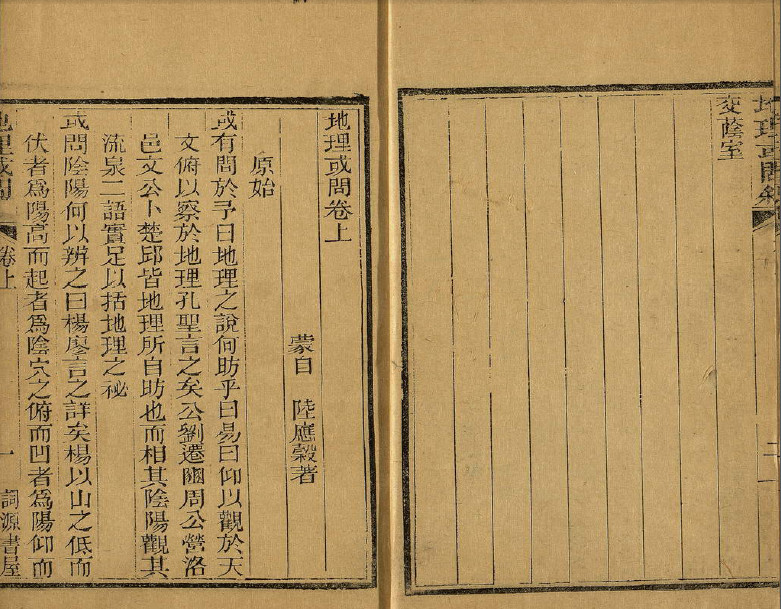 地理或問
二
蔭室
地理或問卷上
蒙自　陸應穀著
原始
或有問於予曰地理之說何昉乎曰易曰仰以觀於天
文俯以察於地理孔聖言之矣公劉遷豳周公營洛
邑文公卜楚邱皆地理所自昉也而相其陰陽觀其
流泉二語實足以括地理之祕
或問陰陽何以辨之曰楊廖言之詳矣楊以山之低而
伏者爲陽高而起者爲陰穴之俯而凹者爲陽仰而
地理或問　卷上　一　詞源書屋